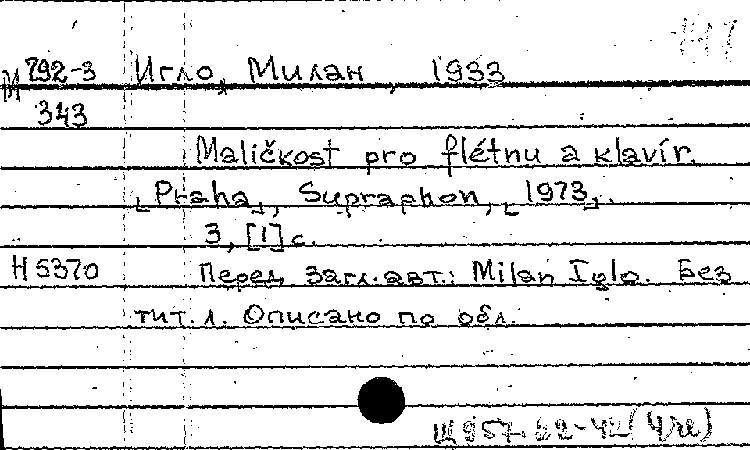 М 292-3 Игло, Милан, 1933
343
Maličkost pro flétnu a klavír.
[Praha], Supraphon, [1973].
3, [1] с.
Н 5370 Перед загл. авт.: Milan Iglo. Без
тит. л. Описано по обл.